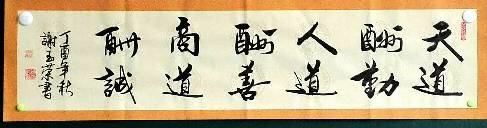 天道
酬勤
人道
酬善
商道
酬誠
丁酉年秋
謝玉榮書